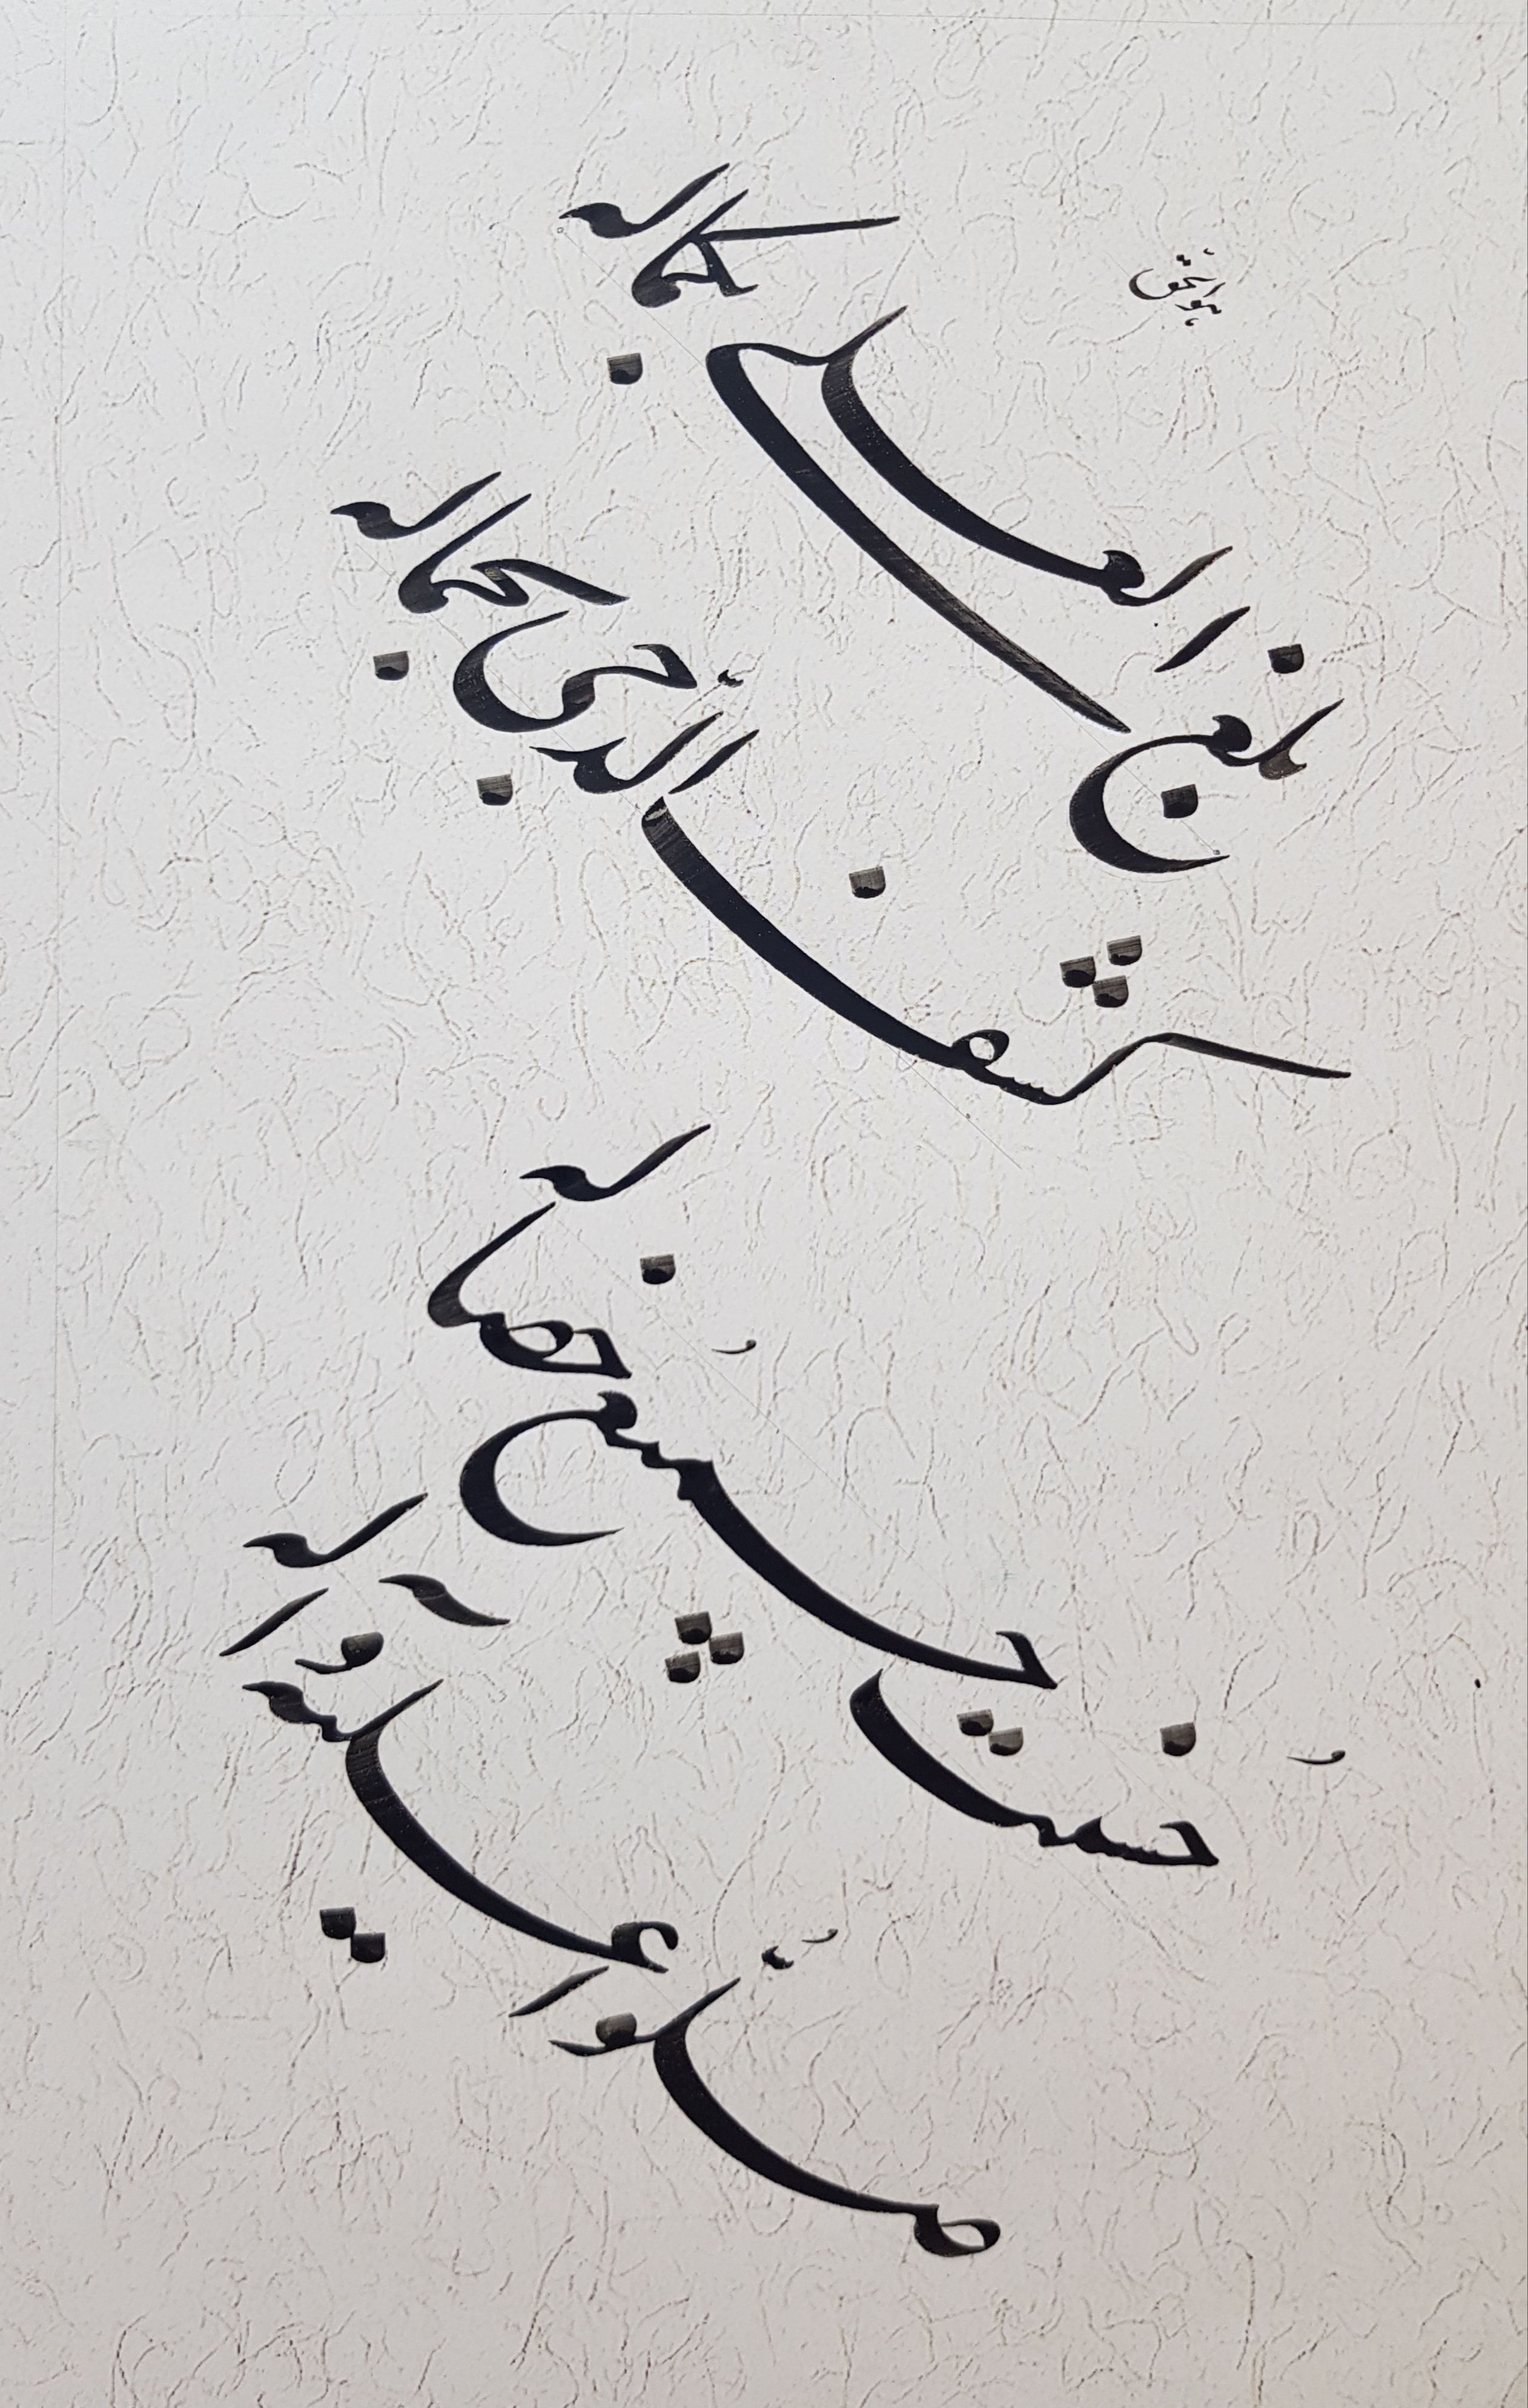 هوالحق
بلغ العلی بکماله
کشف الدجی بجماله
حسنت جمیع خصاله
صلوا علیه و آله